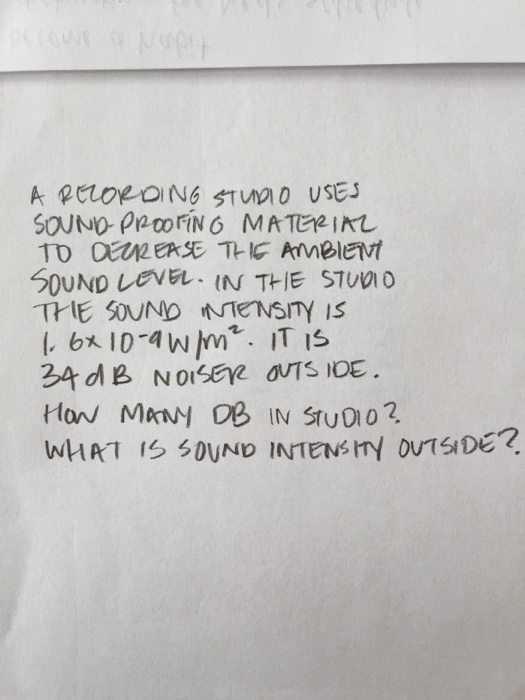 become a habit
A RECORDING STUDIO USES
SOUND-PROOFING MATERIAL
TO DECREASE THE AMBIENT
SOUND LEVEL. IN THE STUDIO
THE SOUND INTENSITY IS
1.6x10-9W/m². IT IS
34dB NOISER OUTSIDE.
HOW MANY DB IN STUDIO?
WHAT IS SOUND INTENSITY OUTSIDE?